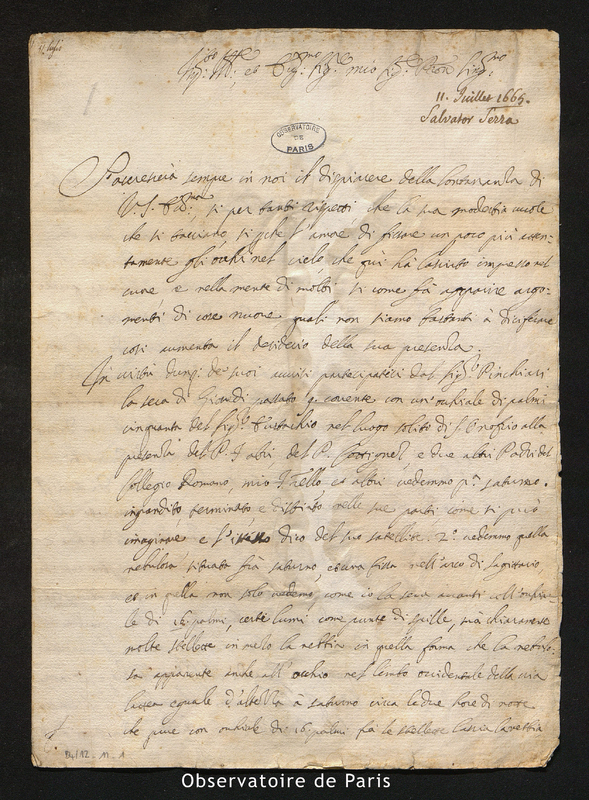 mio
11. Juillet 1665.
Salvator Serra
OBSERVATOIRE
DE
PARIS
sempre in noi il dispiacere della lontananza di
V. S. si per tanti rispetti che la sua modestia vuole
che si tacciano, si che l'amor di fissare un poco più atten-
tamente gli occhi nel cielo, che qui ha lasciato impresso nel
cuore e nella mente di molti si come fà apparire argo-
menti di cose nuove quali non siamo bastanti a
cosi aumenta il desiderio della sua presenza.
In dunq. de suoi avvisi participatici dal Sig.
la sera di Giovedi passato con un'occhiale di palmi
cinquanta del Sig. Eustachio nel luogo solito di S. Onofrio alla
presenza del P. Fabri, del P. e due altri Padri del
Collegio Romano, mio et altri vedemmo p.o saturno
ingrandito, terminato e distinto nelle sue parti, come si può
imaginare e l' disco del suo satellite. 2.o vedemmo quella
nebulosa situata frà saturno, et una fissa nell'arco di sagittario
et in quella non solo vedemo, come io la sera avanti coll'occhia-
le di palmi, certi lumi come punte di spille, mà chiaramente
molte stellette in mezo la nebbia in quella forma che la nebulo-
sa apparente anche all'occhio nel lembo occidentale della via
lattea eguale d'altezza à saturno circa le due hore di notte
che pure con occhiale di 16 palmi frà le stellette lascia la nebbia
D4/12 - 11 - 1
Observatoire de Paris